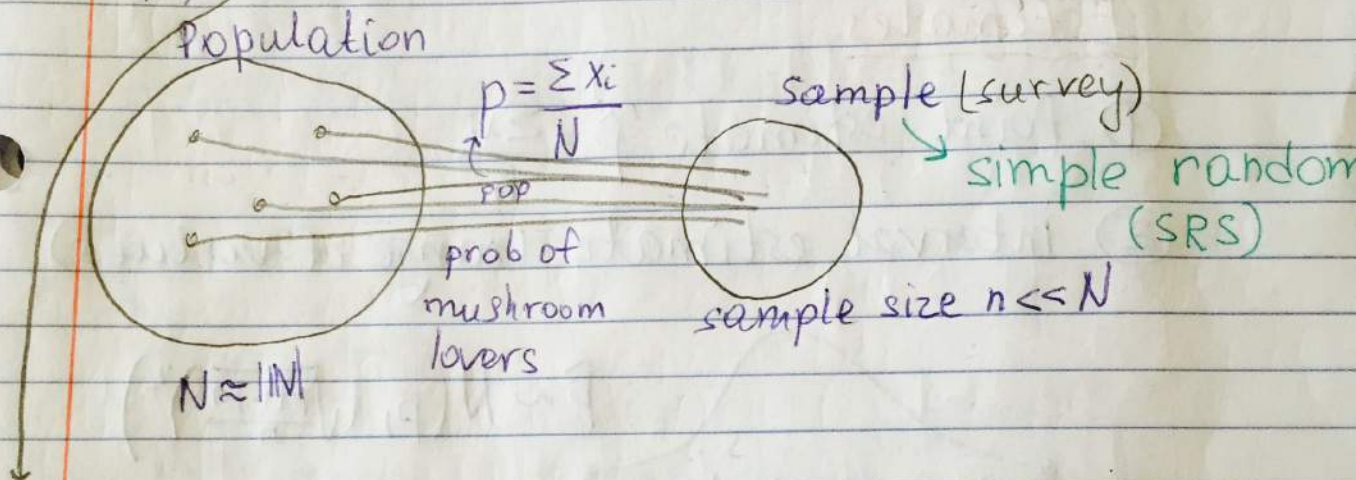 Population
p = Σ xi / N
pop
prob of
mushroom
lovers
N ≈ |ℕ|
sample (survey)
simple random
(SRS)
sample size n << N